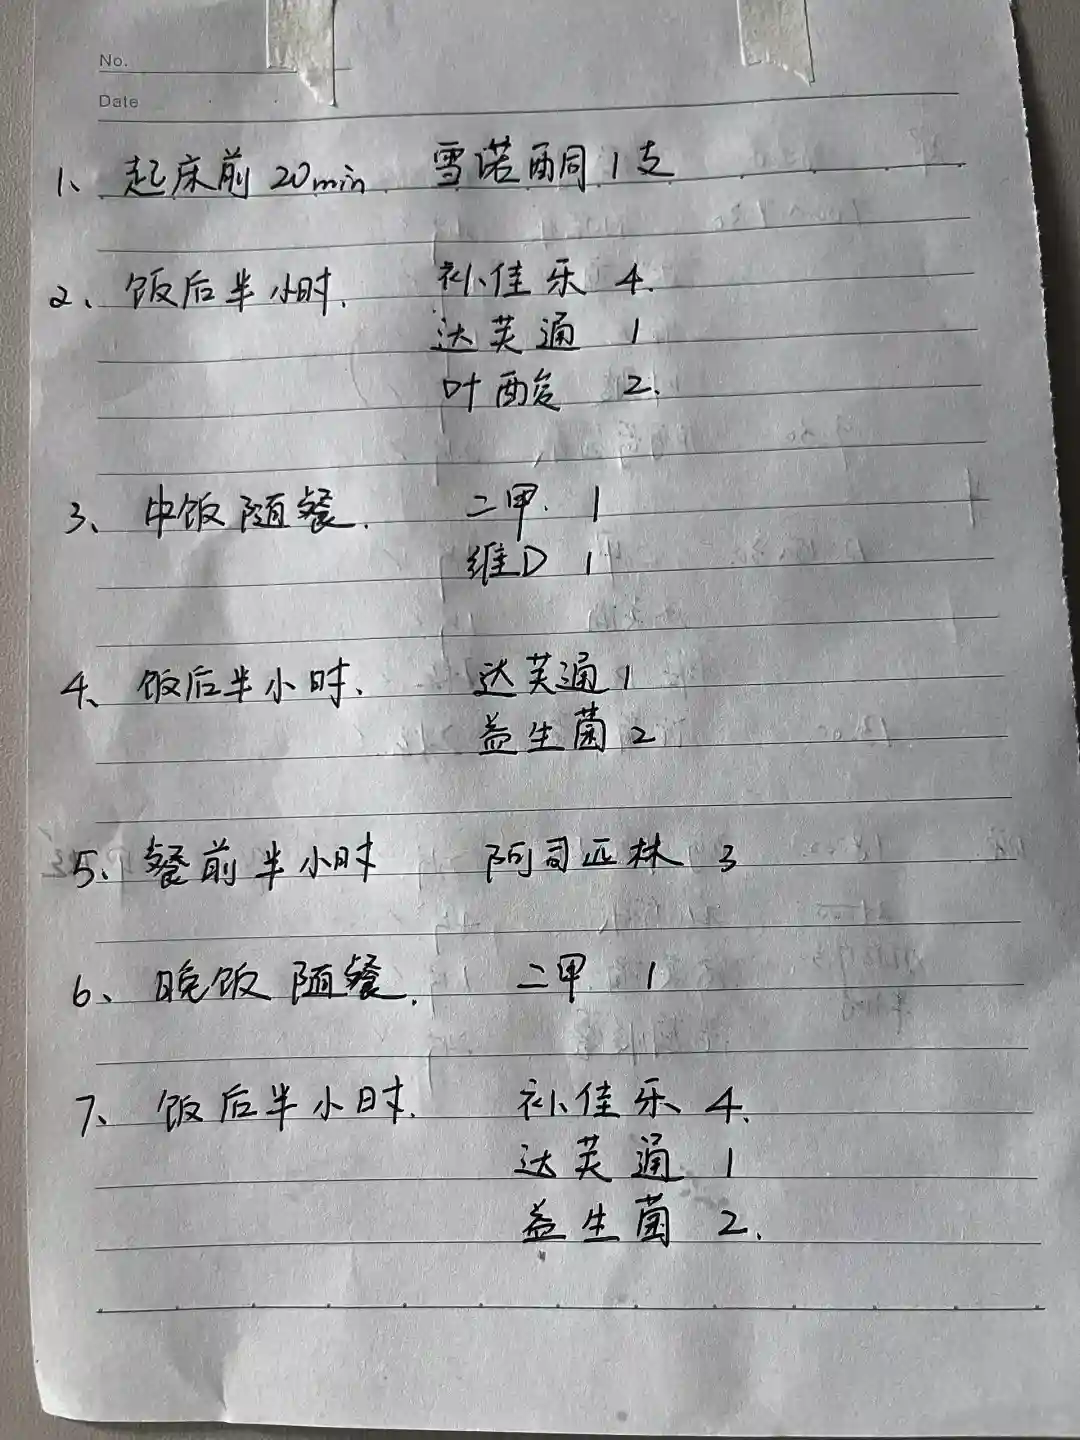 No.
Date
1、起床前20min 雪诺酮1支
2、饭后半小时. 补佳乐 4.
达芙通 1
叶酸 2.
3、中饭随餐. 二甲. 1
维D 1
4、饭后半小时. 达芙通 1
益生菌 2
5、餐前半小时 阿司匹林 3
6、晚饭随餐. 二甲 1
7、饭后半小时. 补佳乐 4.
达芙通 1
益生菌 2.